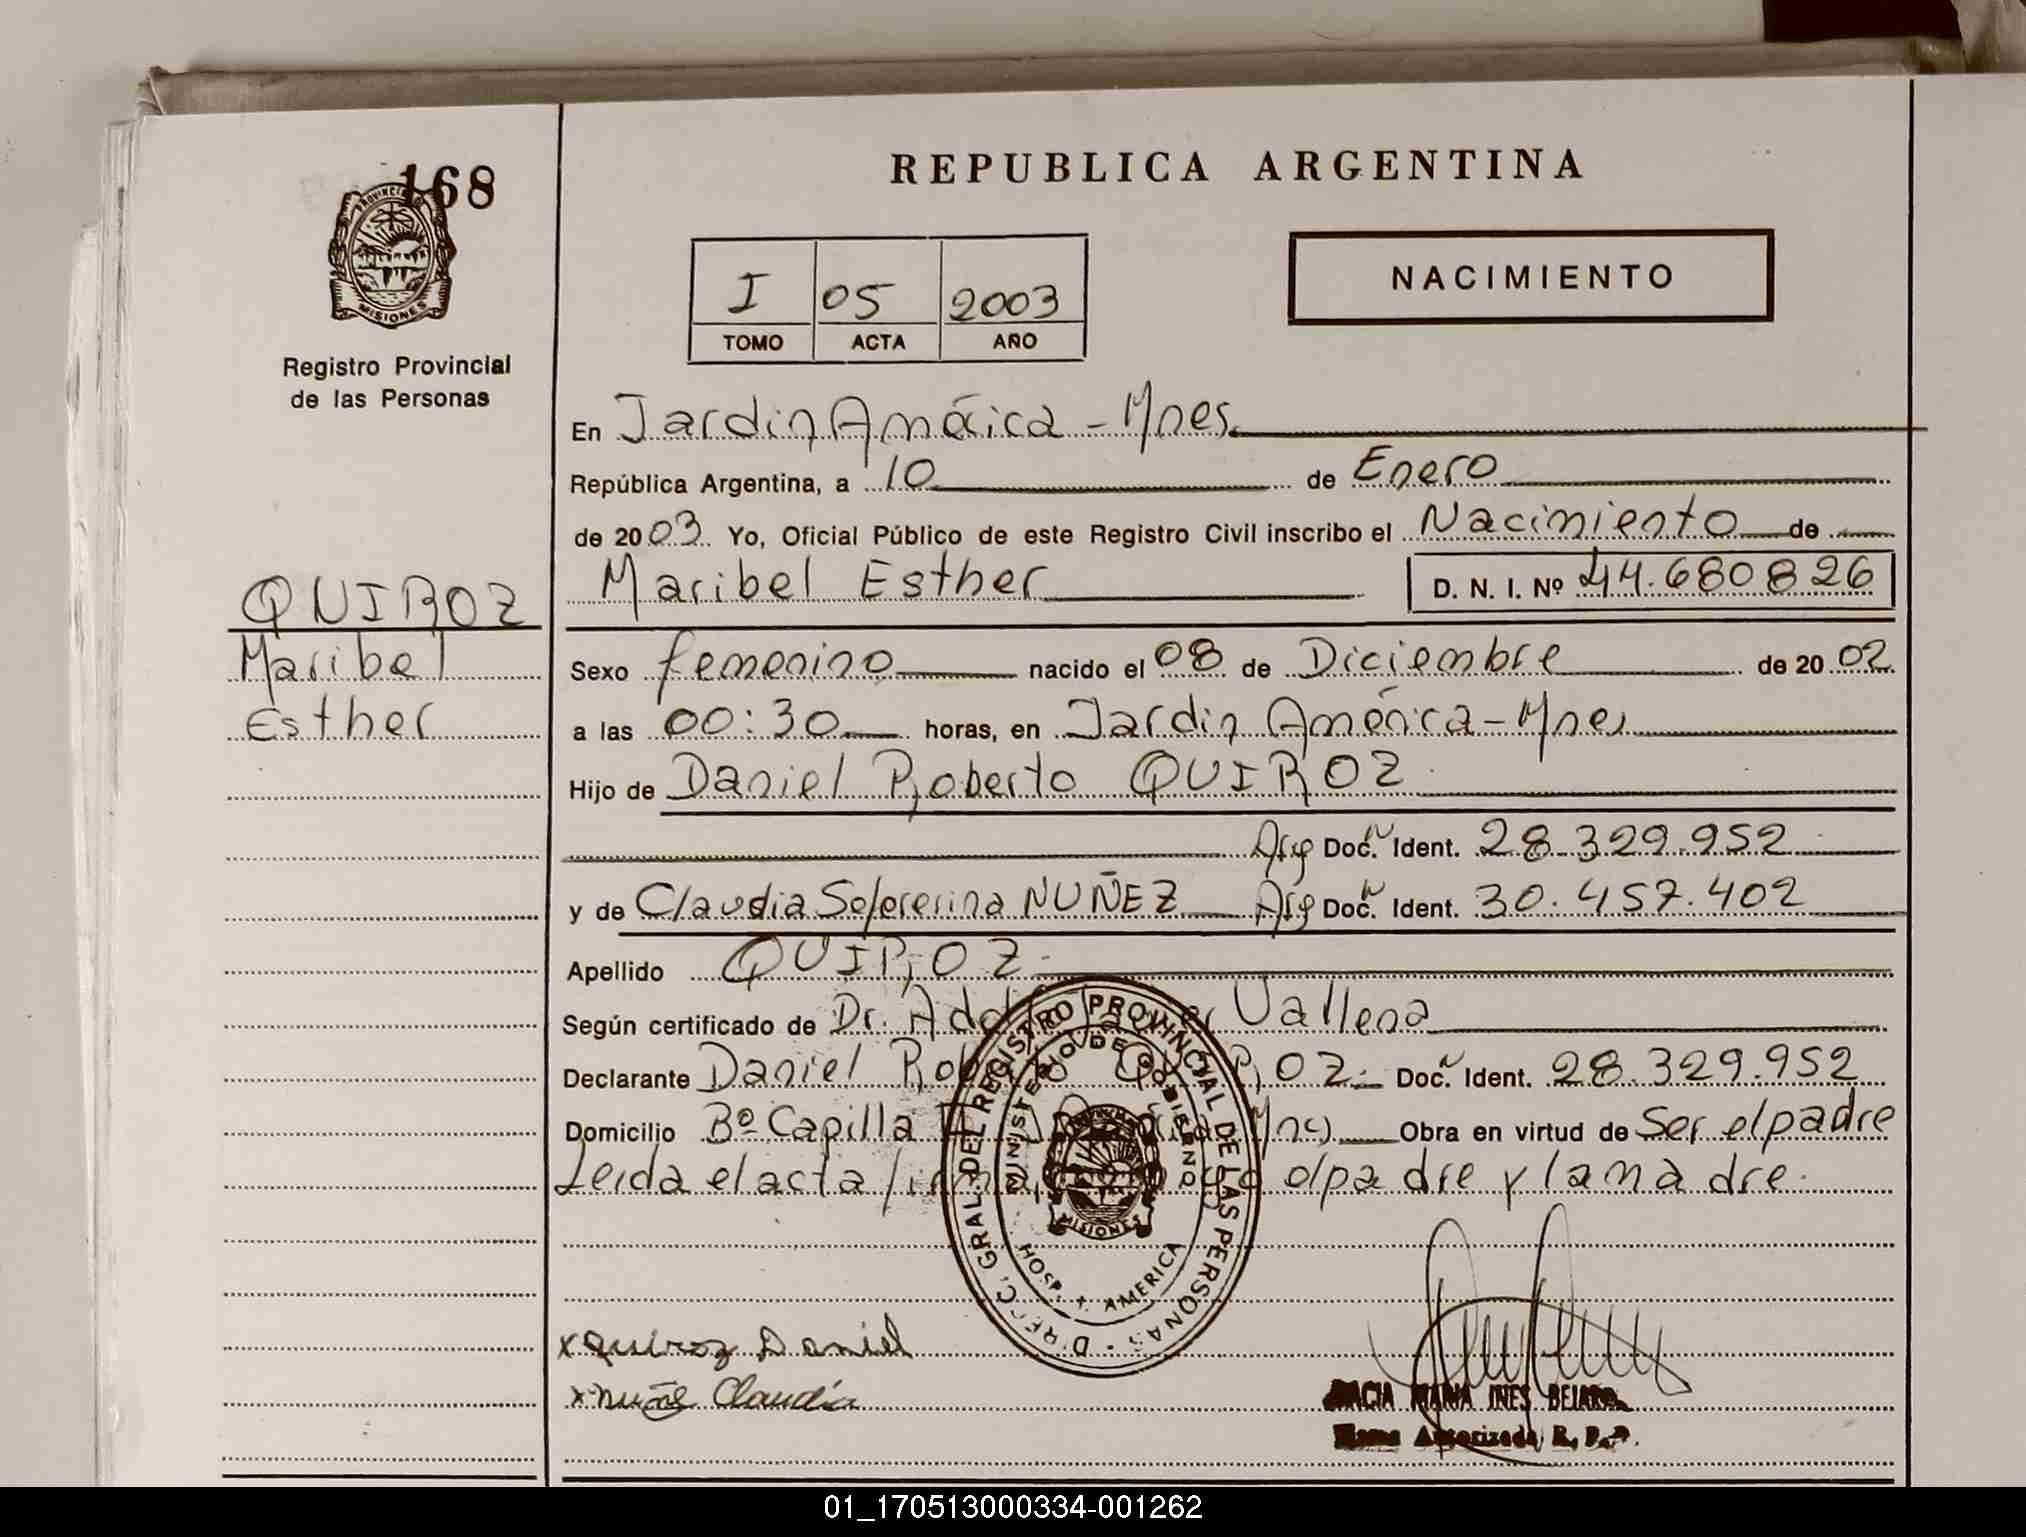 168
PROVINCIA
MISIONES
Registro Provincial
de las Personas
QUIROZ
Maribel
Esther
REPUBLICA ARGENTINA
I 05 2003
TOMO ACTA AÑO
NACIMIENTO
En Jardin América - Mnes.
República Argentina, a 10 de Enero
de 2003 Yo, Oficial Público de este Registro Civil inscribo el Nacimiento de
Maribel Esther D. N. I. Nº 44.680826
Sexo femenino nacido el 08 de Diciembre de 2002
a las 00:30 horas, en Jardin América - Mnes
Hijo de Daniel Roberto QUIROZ
Arg Doc. Ident. 28.329.952
y de Claudia NUÑEZ Arg Doc. Ident. 30.457.402
Apellido QUIROZ
Según certificado de Dr. Vallena
Declarante Daniel QUIROZ Doc. Ident. 28.329.952
Domicilio Bº Capilla Obra en virtud de Ser el padre
Leida el acta el padre y la madre.
DIREC. GRAL DEL REGISTRO PROVINCIAL DE LAS PERSONAS
MINISTERIO DE GOBIERNO
MISIONES
HOSP. J. AMERICA
x Quiroz Daniel
x Nuñez Claudia
MARIA INES
Autorizada R. P. P.
01_170513000334-001262